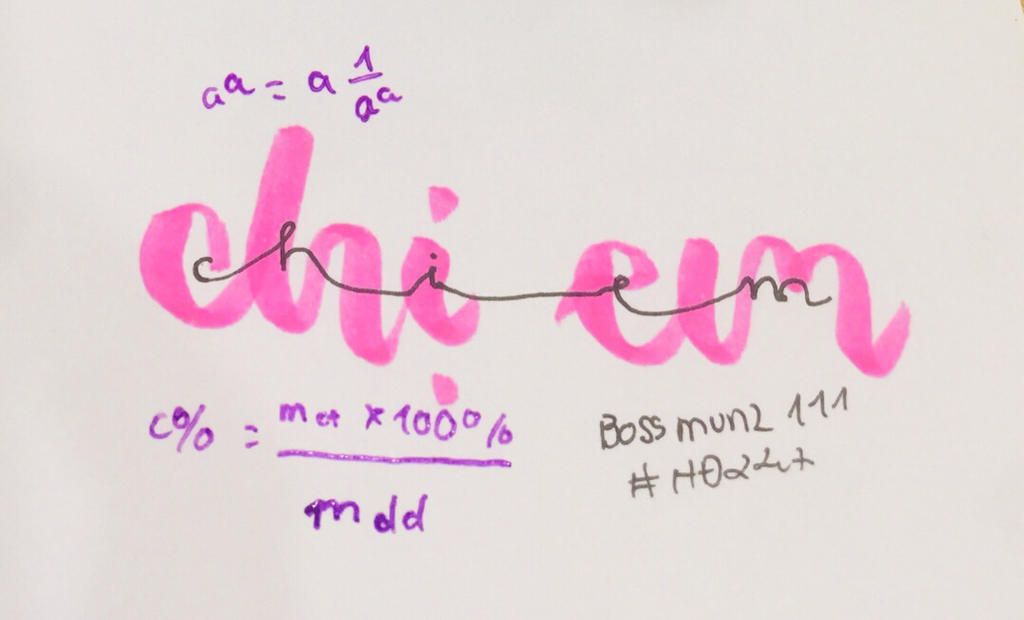 aᵃ = a 1/aᵃ
chị em
chi em
C% = mct x 100% / mdd
Bossmun2 111